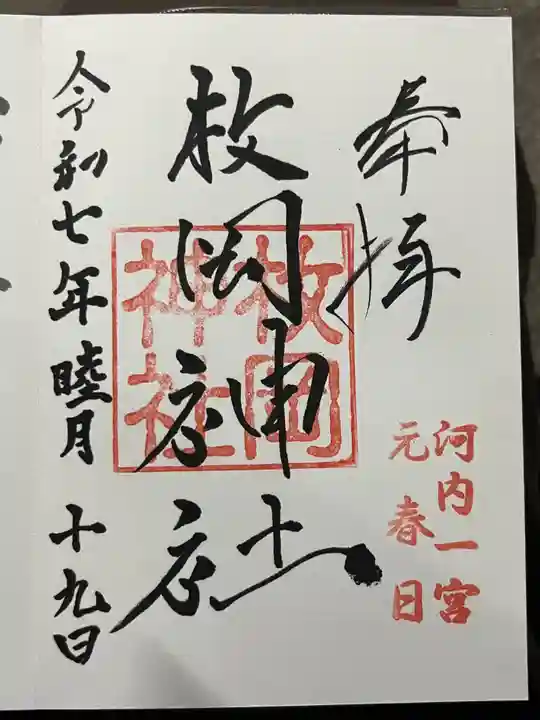 奉拝
河内一宮
元春日
枚岡神社
枚岡
神社
令和七年睦月十九日